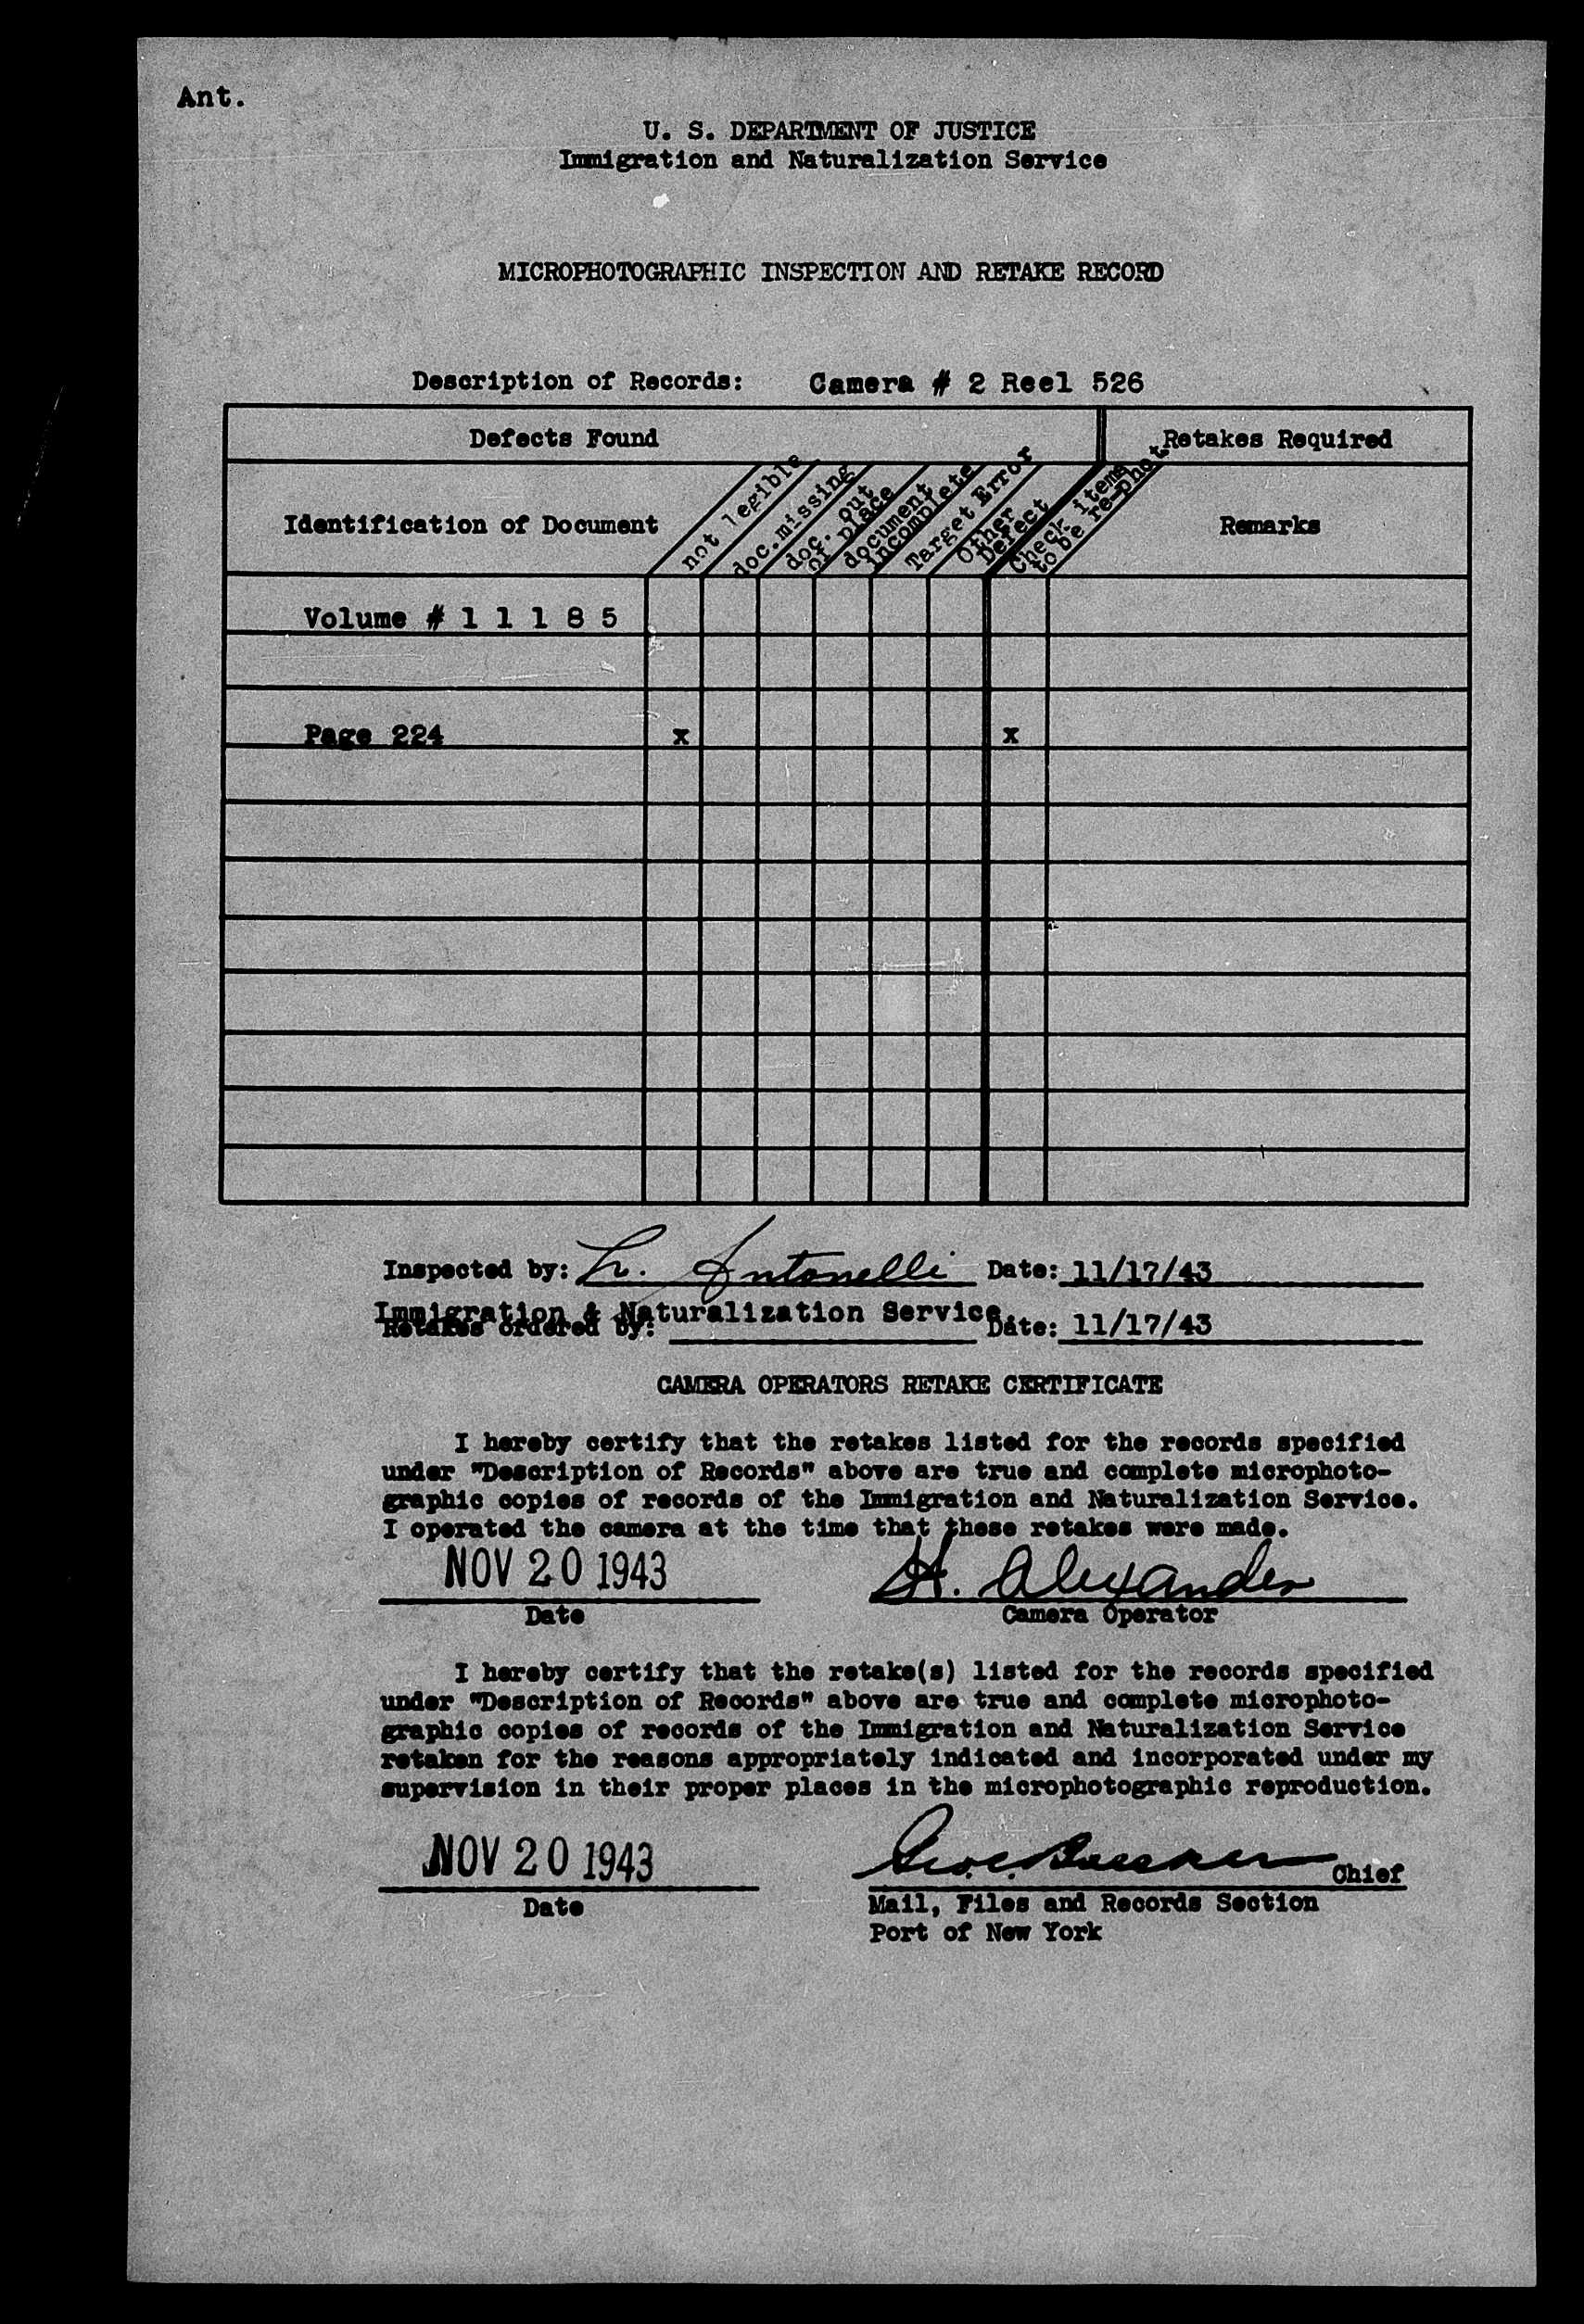 Ant.
U. S. DEPARTMENT OF JUSTICE
Immigration and Naturalization Service
MICROPHOTOGRAPHIC INSPECTION AND RETAKE RECORD
Description of Records: Camera # 2 Reel 526
Defects Found
Retakes Required
Identification of Document
not legible
doc.missing
doc. out
of place
document
incomplete
Target Error
Other
Defect
Check items
to be re-phot.
Remarks
Volume # 1 1 1 8 5
Page 224 x x
Inspected by: L. Antonelli Date: 11/17/43
Immigration & Naturalization Service
Retakes ordered by: Date: 11/17/43
CAMERA OPERATORS RETAKE CERTIFICATE
I hereby certify that the retakes listed for the records specified
under "Description of Records" above are true and complete microphoto-
graphic copies of records of the Immigration and Naturalization Service.
I operated the camera at the time that these retakes were made.
NOV 20 1943 H. Alexander
Date Camera Operator
I hereby certify that the retake(s) listed for the records specified
under "Description of Records" above are true and complete microphoto-
graphic copies of records of the Immigration and Naturalization Service
retaken for the reasons appropriately indicated and incorporated under my
supervision in their proper places in the microphotographic reproduction.
NOV 20 1943 Chief
Date Mail, Files and Records Section
Port of New York